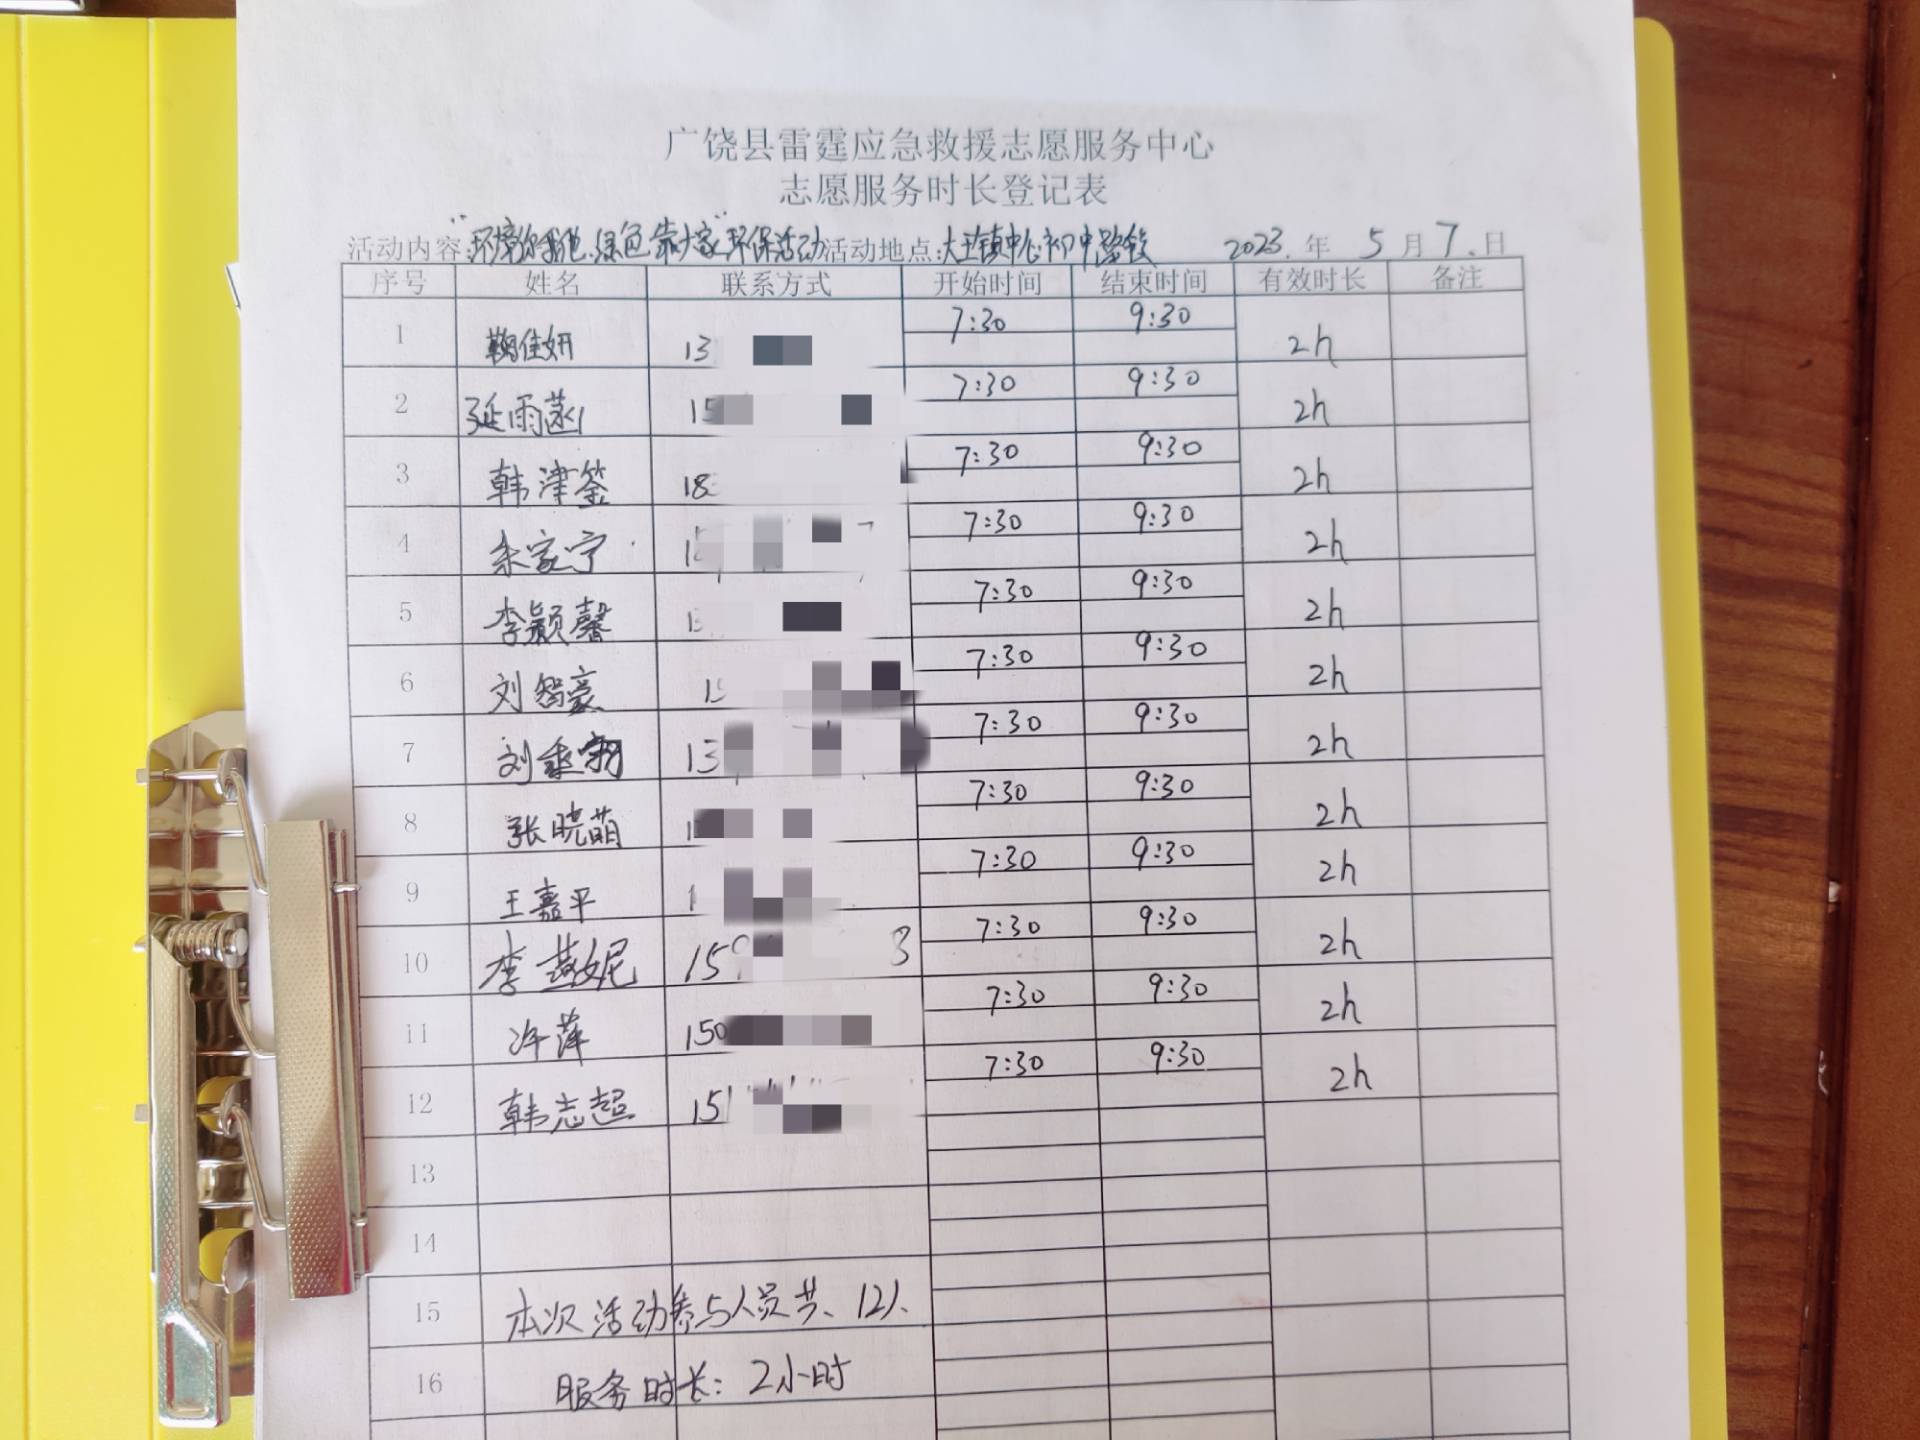 广饶县雷霆应急救援志愿服务中心
志愿服务时长登记表
活动内容:"环境你我他.绿色靠大家"环保活动 活动地点:大王镇中心初中路段 2023.年 5月7.日
序号 姓名 联系方式 开始时间 结束时间 有效时长 备注
1 鞠佳妍 13 7:30 9:30 2h
2 延雨菡 15 7:30 9:30 2h
3 韩津筌 18 7:30 9:30 2h
4 家宁 1 7:30 9:30 2h
5 李颖馨 1 7:30 9:30 2h
6 刘智豪 1 7:30 9:30 2h
7 刘 13 7:30 9:30 2h
8 张晓萌 1 7:30 9:30 2h
9 王嘉平 1 7:30 9:30 2h
10 李燕妮 15 3 7:30 9:30 2h
11 许萍 150 7:30 9:30 2h
12 韩志超 151 7:30 9:30 2h
13
14
15 本次活动参与人员共、12人、
16 服务时长:2小时